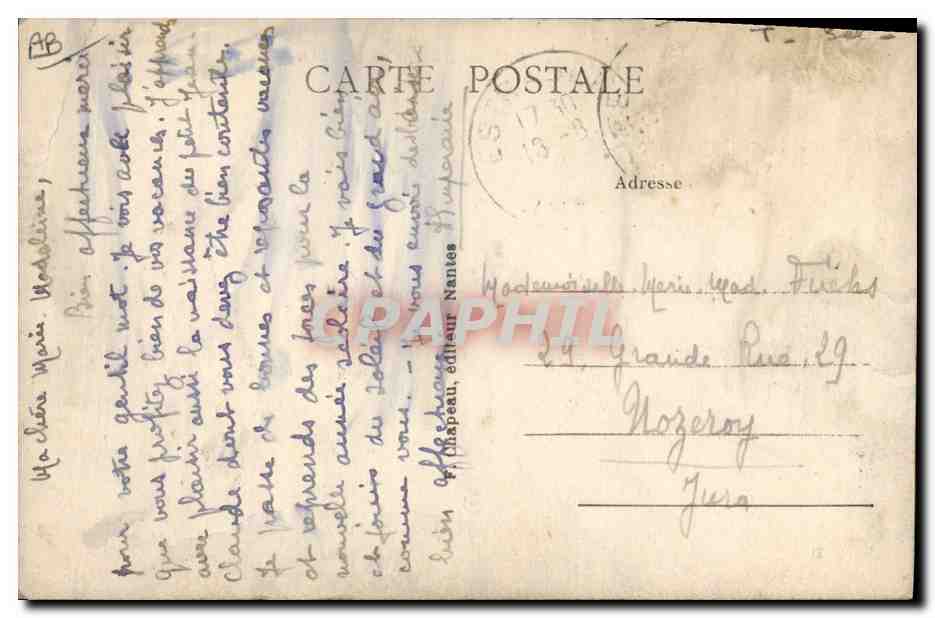 AB
CARTE POSTALE
17 30
18 -8
Adresse
Mademoiselle Marie Mad. Fuchs
29, Grande Rue, 29
Nozeroy
Jura
F. Chapeau, éditeur Nantes
Ma chère Marie Madeleine,
Bien affectueux merci
pour votre gentil mot. Je vois avec plaisir
que vous profitez bien de vos vacances. J'apprends
avec plaisir aussi la naissance du petit Jean
Claude dont vous devez être bien contents.
Je passe de bonnes et reposantes vacances
et reprends des forces pour la
nouvelle année scolaire. Je vais bien
et jouis du soleil et du grand air
comme vous. - Je vous envoie
bien affectueux
CPAPHIL
18